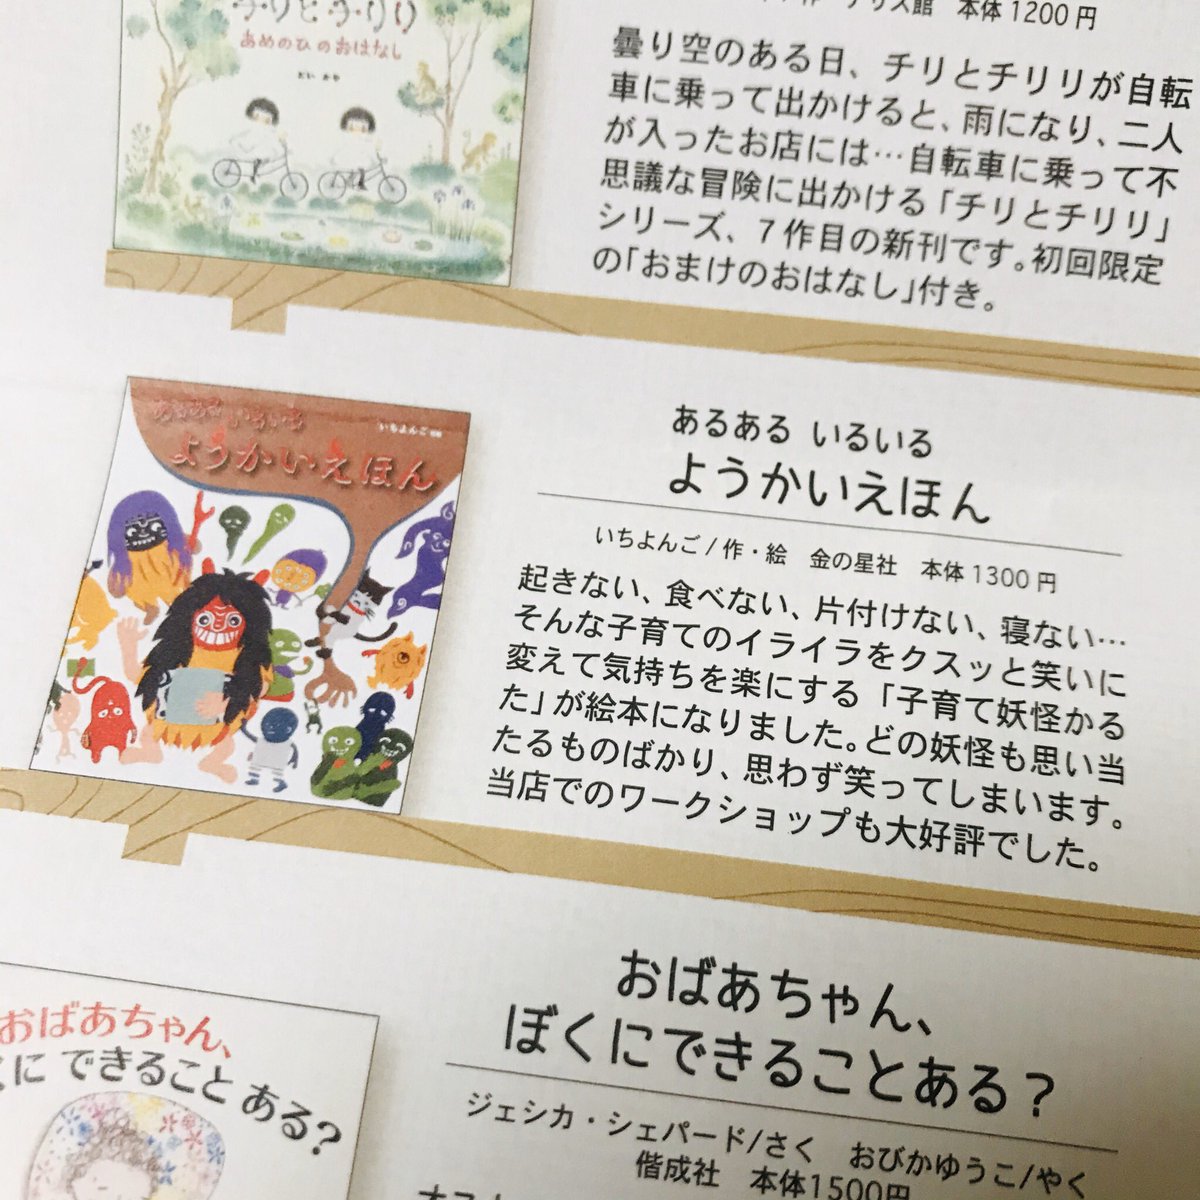 チリとチリリ
あめのひのおはなし
どい かや
本体1200円
曇り空のある日、チリとチリリが自転
車に乗って出かけると、雨になり、二人
が入ったお店には…自転車に乗って不
思議な冒険に出かける「チリとチリリ」
シリーズ、7作目の新刊です。初回限定
の「おまけのおはなし」付き。
あるある いるいる
ようかいえほん
いちよんご
あるある いるいる
ようかいえほん
いちよんご/作・絵 金の星社 本体1300円
起きない、食べない、片付けない、寝ない…
そんな子育てのイライラをクスッと笑いに
変えて気持ちを楽にする「子育て妖怪かる
た」が絵本になりました。どの妖怪も思い当
たるものばかり、思わず笑ってしまいます。
当店でのワークショップも大好評でした。
おばあちゃん、
くに できること ある?
おばあちゃん、
ぼくにできることある?
ジェシカ・シェパード/さく おびかゆうこ/やく
偕成社 本体1500円